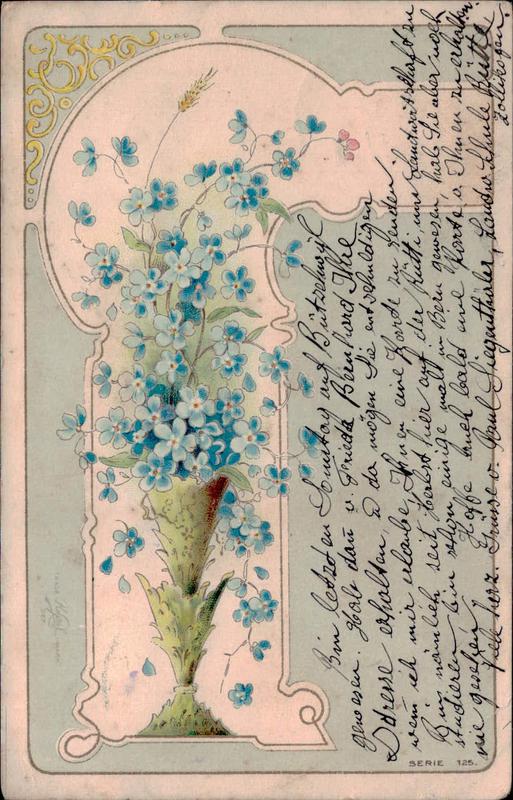 Bin letzten Sonntag auf Bützberg
gewesen. Habe dan v. Frieda Bernhard Ihre
Adresse erhalten, & da mögen Sie entschuldigen
wenn ich mir erlaube Ihnen eine Karde zu senden.
Bin nämlich seit Herbst hier auf der Rütti, um Landwirtschaft zu
studieren bin schon einige malt in Bern gewesen hab Sie aber noch
nie gesehen. Hoffe auch bald eine Karte v. Ihnen zu erhalten.
Viel herz. Grüsse v. Paul Siegenthaler, Landw. Schule Rütti
Zollikofen.
SERIE 125.